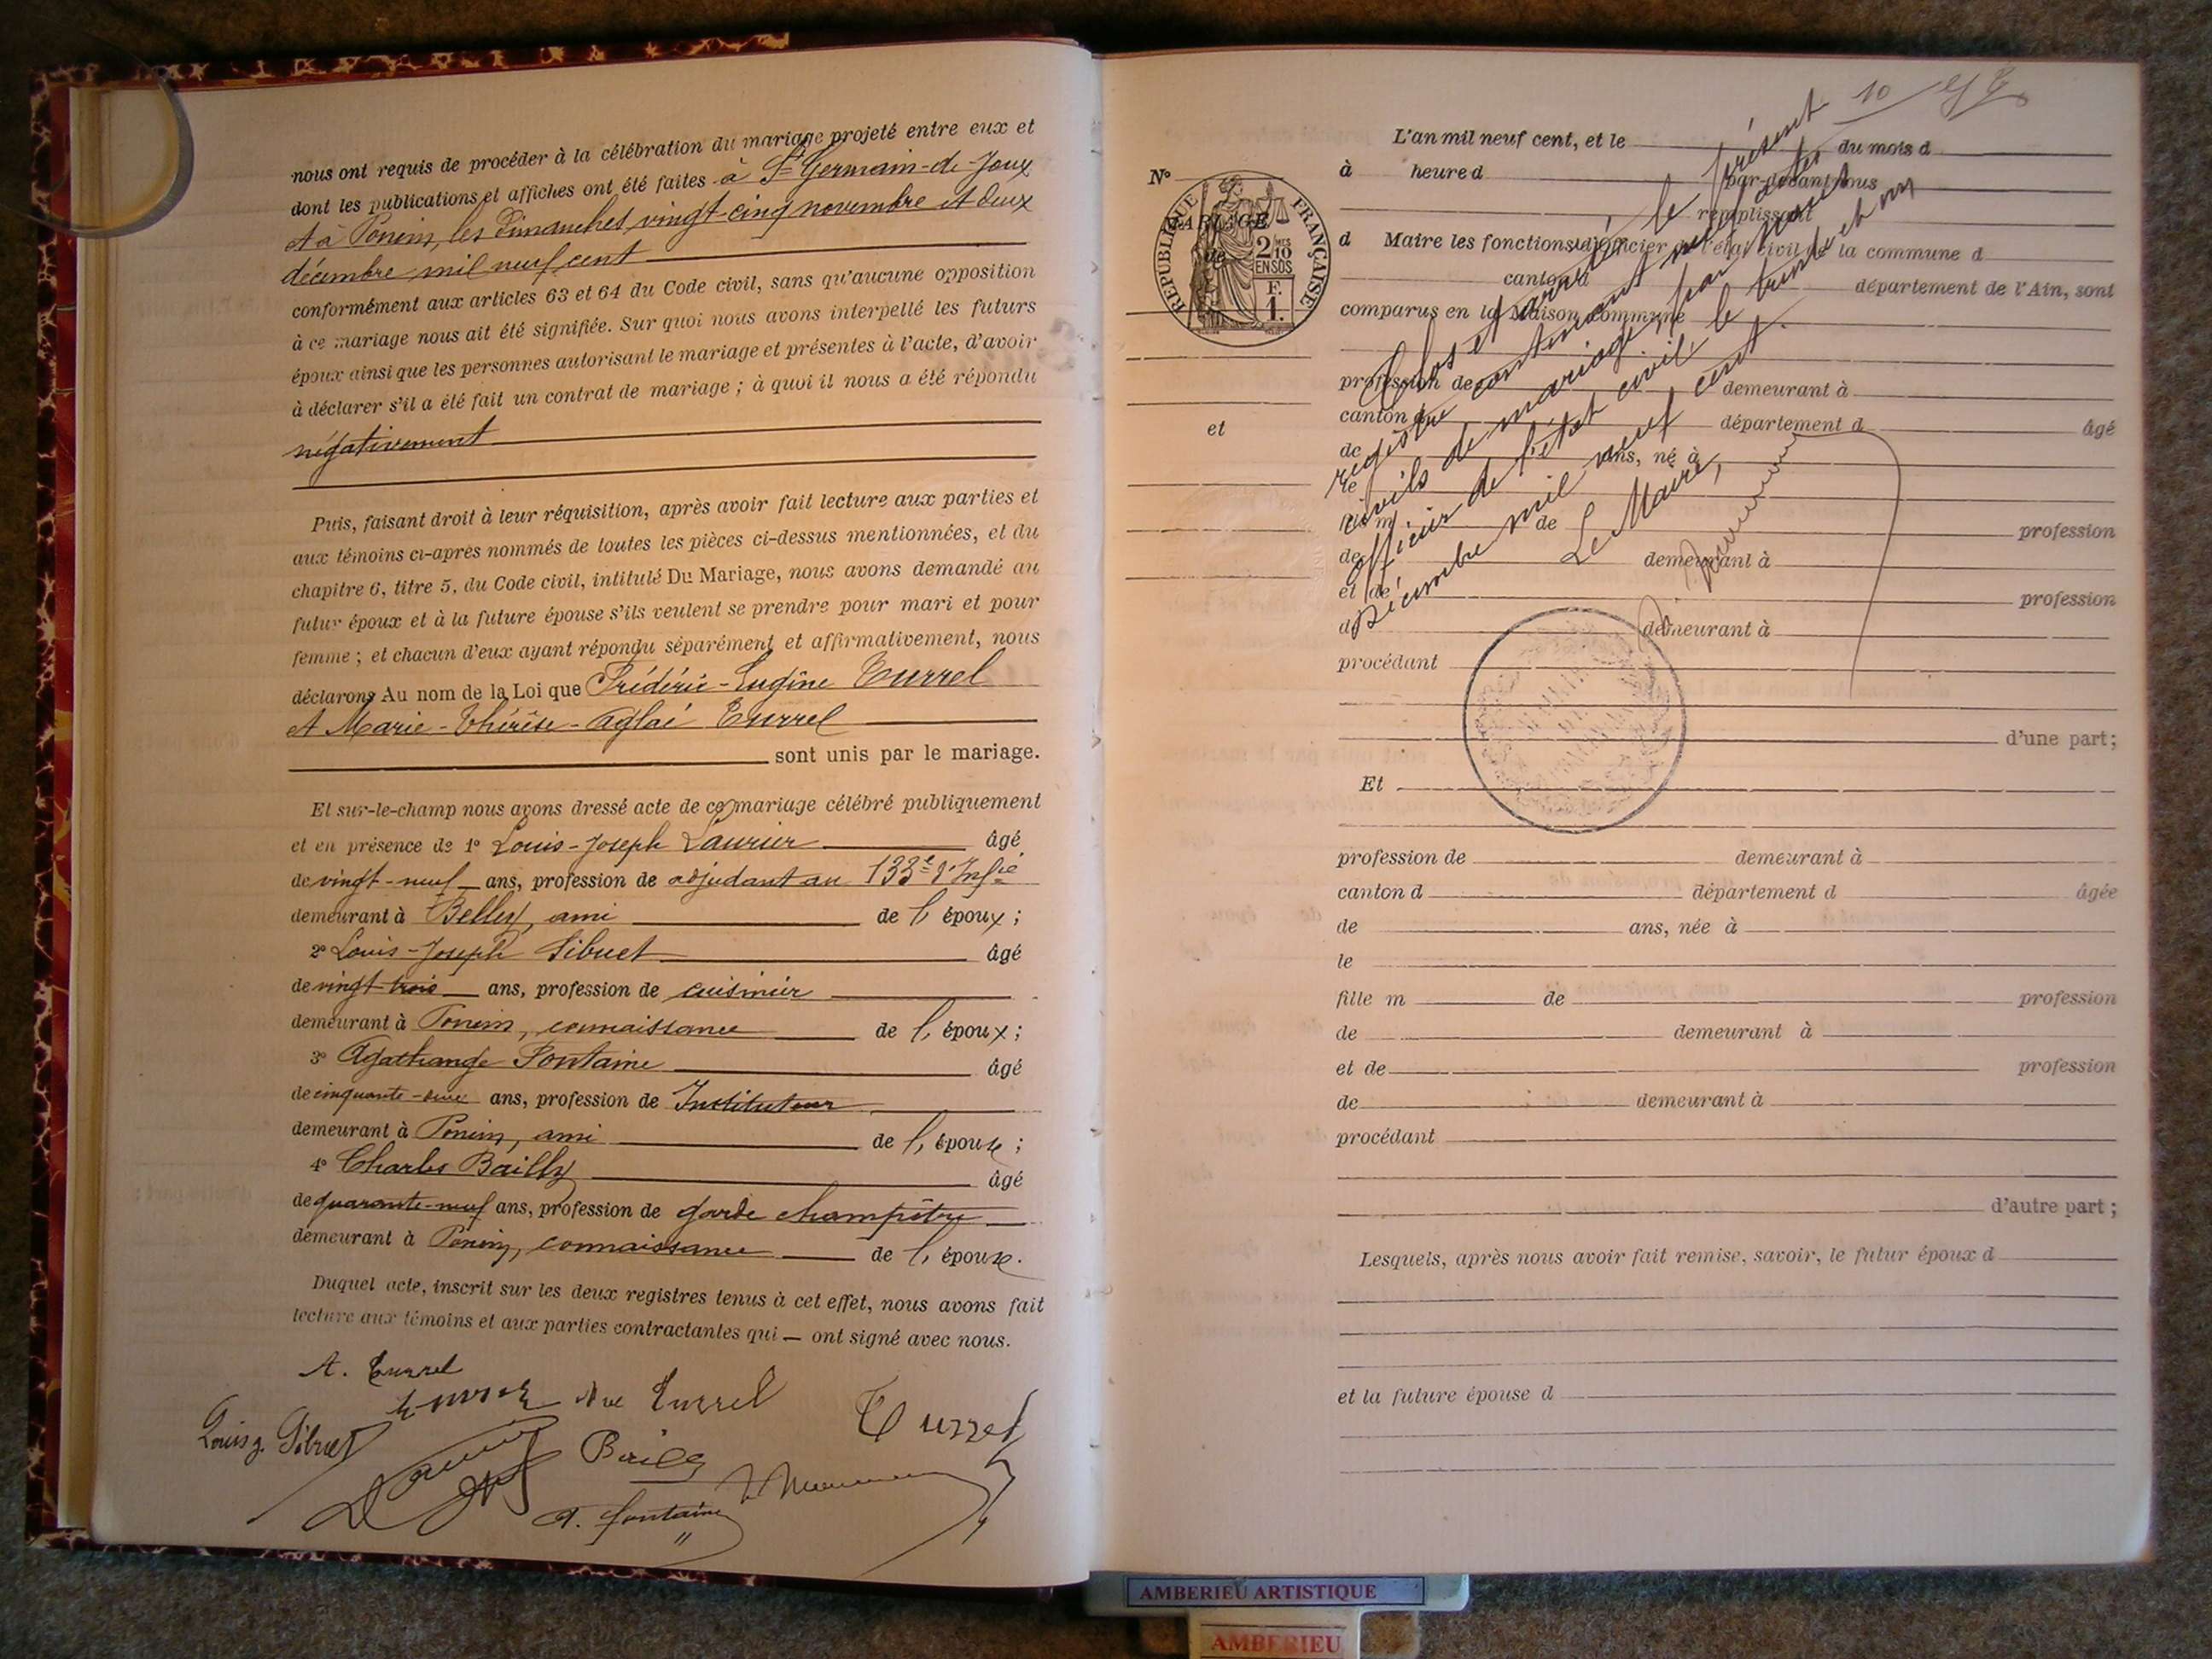 nous ont requis de procéder à la célébration du mariage projeté entre eux et
dont les publications et affiches ont été faites à St Germain-de-Joux
et à Poncin, les Dimanches vingt-cinq novembre et deux
décembre mil neuf cent
conformément aux articles 63 et 64 du Code civil, sans qu'aucune opposition
à ce mariage nous ait été signifiée. Sur quoi nous avons interpellé les futurs
époux ainsi que les personnes autorisant le mariage et présentes à l'acte, d'avoir
à déclarer s'il a été fait un contrat de mariage ; à quoi il nous a été répondu
négativement
Puis, faisant droit à leur réquisition, après avoir fait lecture aux parties et
aux témoins ci-après nommés de toutes les pièces ci-dessus mentionnées, et du
chapitre 6, titre 5, du Code civil, intitulé Du Mariage, nous avons demandé au
futur époux et à la future épouse s'ils veulent se prendre pour mari et pour
femme ; et chacun d'eux ayant répondu séparément et affirmativement, nous
déclarons Au nom de la Loi que Frédéric-Eugène Turrel
et Marie-Thérèse-Aglaé Turrel
sont unis par le mariage.
Et sur-le-champ nous avons dressé acte de ce mariage célébré publiquement
et en présence de 1° Louis-Joseph Laurier âgé
de vingt-neuf ans, profession de adjudant au 133e d'Infie
demeurant à Belley, ami de l' époux ;
2° Louis-Joseph Sibuet âgé
de vingt-trois ans, profession de cuisinier
demeurant à Poncin, connaissance de l' époux ;
3° Agathange Fontaine âgé
de cinquante-deux ans, profession de Instituteur
demeurant à Poncin, ami de l' épouse ;
4° Charles Bailly âgé
de quarante-neuf ans, profession de garde champêtre
demeurant à Poncin, connaissance de l' épouse.
Duquel acte, inscrit sur les deux registres tenus à cet effet, nous avons fait
lecture aux témoins et aux parties contractantes qui — ont signé avec nous.
A. Turrel
Vve Turrel
Turrel
Louis J. Sibuet
Bailly
A. Fontaine
10
L'an mil neuf cent, et le du mois d
N° à heure d par-devant nous
RÉPUBLIQUE FRANÇAISE
2/10 EN SUS
F. 1.
MARIAGE
de
remplissant
d Maire les fonctions d'officier de l'état civil de la commune d
canton d département de l'Ain, sont
comparus en la Maison commune
profession de demeurant à
canton d département d âgé
et
de ans, né à
le
fils m de profession
de demeurant à
et de profession
d demeurant à
procédant
d'une part ;
Clos et arrêté le présent
registre contenant neuf actes
civils de mariage, par nous
officier de l'état civil le trente et un
Décembre mil neuf cent.
Le Maire,
Et
profession de demeurant à
canton d département d âgée
de ans, née à
le
fille m de profession
de demeurant à
et de profession
de demeurant à
procédant
d'autre part ;
Lesquels, après nous avoir fait remise, savoir, le futur époux d
et la future épouse d
AMBERIEU ARTISTIQUE
AMBERIEU